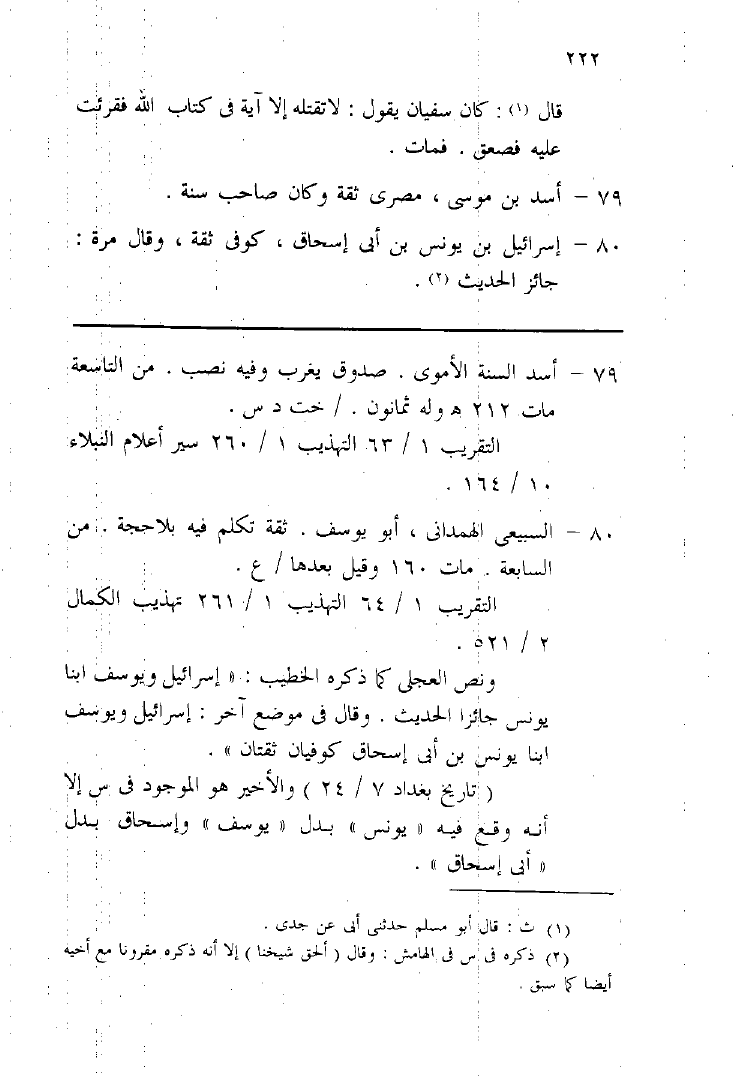 ٢٢٢
قال (١) : كان سفيان يقول : لاتقتله إلا آية فى كتاب الله فقرئت
عليه فصعق . فمات .
٧٩ – أسد بن موسى ، مصرى ثقة وكان صاحب سنة .
٨٠ – إسرائيل بن يونس بن أبى إسحاق ، كوفى ثقة ، وقال مرة :
جائز الحديث (٢) .
٧٩ – أسد السنة الأموى . صدوق يغرب وفيه نصب . من التاسعة
مات ٢١٢ هـ وله ثمانون . / خت د س .
التقريب ١ / ٦٣ التهذيب ١ / ٢٦٠ سير أعلام النبلاء
١٠ / ١٦٤ .
٨٠ – السبيعى الهمدانى ، أبو يوسف . ثقة تكلم فيه بلاحجة . من
السابعة . مات ١٦٠ وقيل بعدها / ع .
التقريب ١ / ٦٤ التهذيب ١ / ٢٦١ تهذيب الكمال
٢ / ٥٢١ .
ونص العجلى كما ذكره الخطيب : « إسرائيل ويوسف ابنا
يونس جائزا الحديث . وقال فى موضع آخر : إسرائيل ويوسف
ابنا يونس بن أبى إسحاق كوفيان ثقتان » .
( تاريخ بغداد ٧ / ٢٤ ) والأخير هو الموجود فى س إلا
أنه وقع فيه « يونس » بدل « يوسف » وإسحاق بدل
« أبى إسحاق » .
(١) ث : قال أبو مسلم حدثنى أبى عن جدى .
(٢) ذكره فى س فى الهامش : وقال ( ألحق شيخنا ) إلا أنه ذكره مقرونا مع أخيه
أيضا كما سبق .